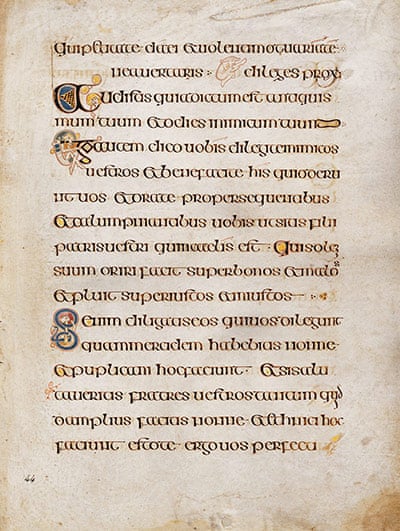 qui petit a te da ei & uolenti mutuari a te
ne auertaris : diliges prox
Audistis quia dictum est antiquis
mum tuum & odies inimicum tuum
Ego autem dico uobis diligite inimicos
uestros & benefacite his qui oderu
nt uos & orate pro persequentibus
& calumpniantibus uobis ut sitis filii
patris uestri qui in caelis est · Qui sole
suum oriri facit super bonos & malos
& pluit super iustos & iniustos
Si enim diligatis eos qui uos diligunt
quam mercedem habebitis nonne
& puplicani hoc faciunt · & si salu
taueritis fratres uestros tantum quid
amplius facitis nonne & ethnici hoc
faciunt estote ergo uos perfecti
44